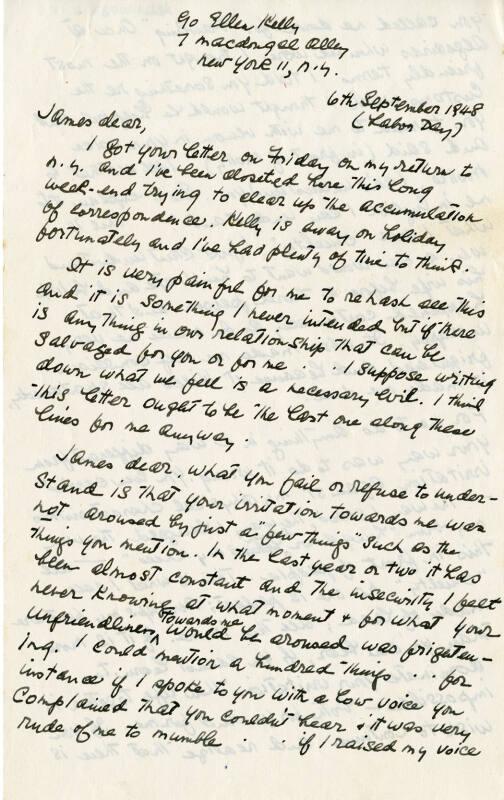 c/o Ellen Kelly
7 macdougal Alley
new York 11, n.y.
6th September 1948
(Labor Day)
James dear,
I got your letter on Friday on my return to
n.y. and I've been closeted here this long
week-end trying to clear up the accumulation
of correspondence. Kelly is away on holiday
fortunately and I've had plenty of time to think.
It is very painful for me to rehash all this
and it is something I never intended but if there
is anything in our relationship that can be
salvaged for you or for me . . . I suppose writing
down what we feel is a necessary evil. I think
this letter ought to be the last one along these
lines for me anyway.
James dear, what you fail or refuse to under-
stand is that your irritation towards me was
not aroused by just a "few things" such as the
things you mention. In the last year or two it has
been almost constant and the insecurity I felt
never knowing at what moment & for what your
unfriendliness towards me would be aroused was frighten-
ing. I could mention a hundred things . . for
instance if I spoke to you with a low voice you
complained that you couldn't hear & it was very
rude of me to mumble . . . if I raised my voice